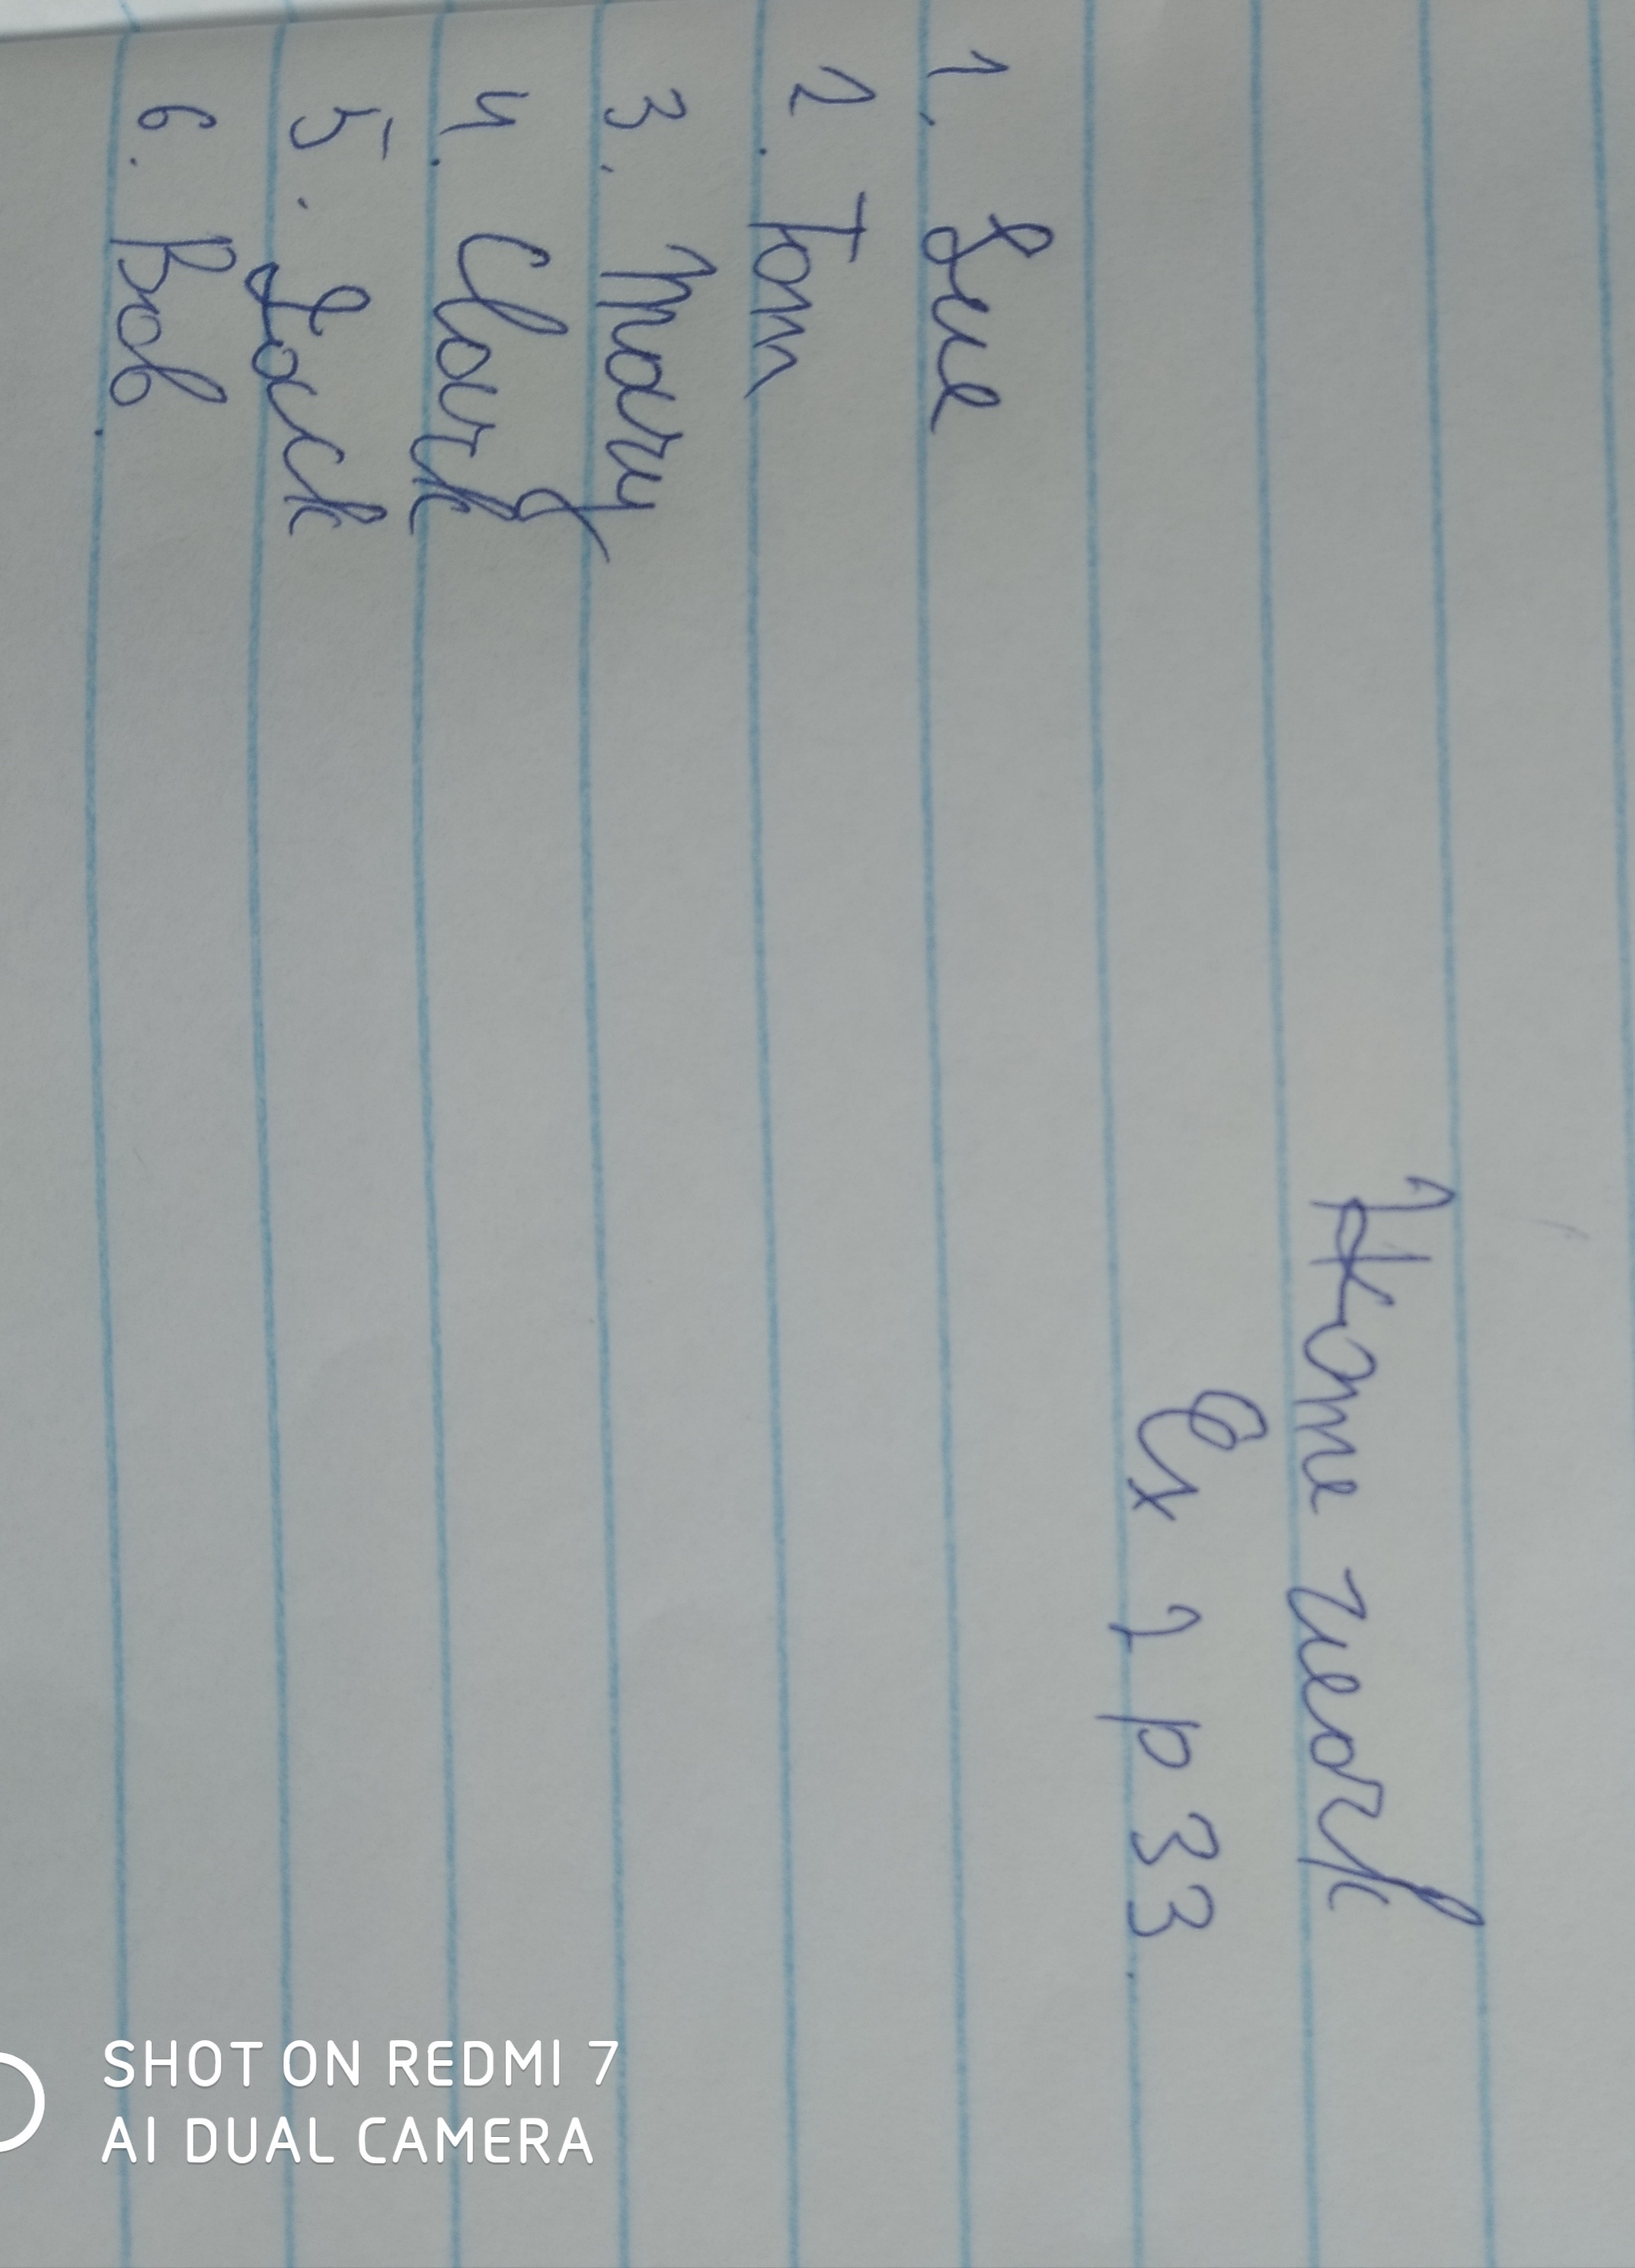 Home work
Ex 1 p 33.
1. Sue
2. Tom
3. Mary
4. Clark
5. Jack
6. Bob.
SHOT ON REDMI 7
AI DUAL CAMERA